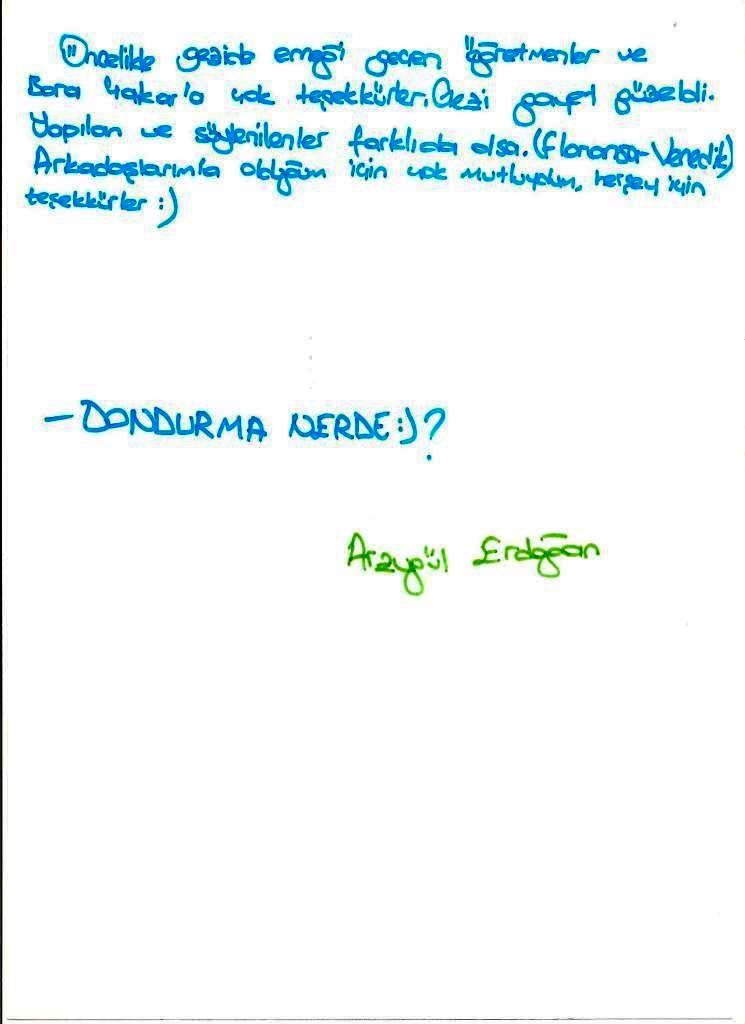 Öncelikle gezide emeği geçen öğretmenler ve
Bora Yakar'a çok teşekkürler. Gezi gayet güzeldi.
Yapılan ve söylenilenler farklıda olsa. (Floransa-Venedik)
Arkadaşlarımla olduğum için çok mutluydum, herşey için
teşekkürler :)
- DONDURMA NERDE :)?
Arzugül Erdoğan